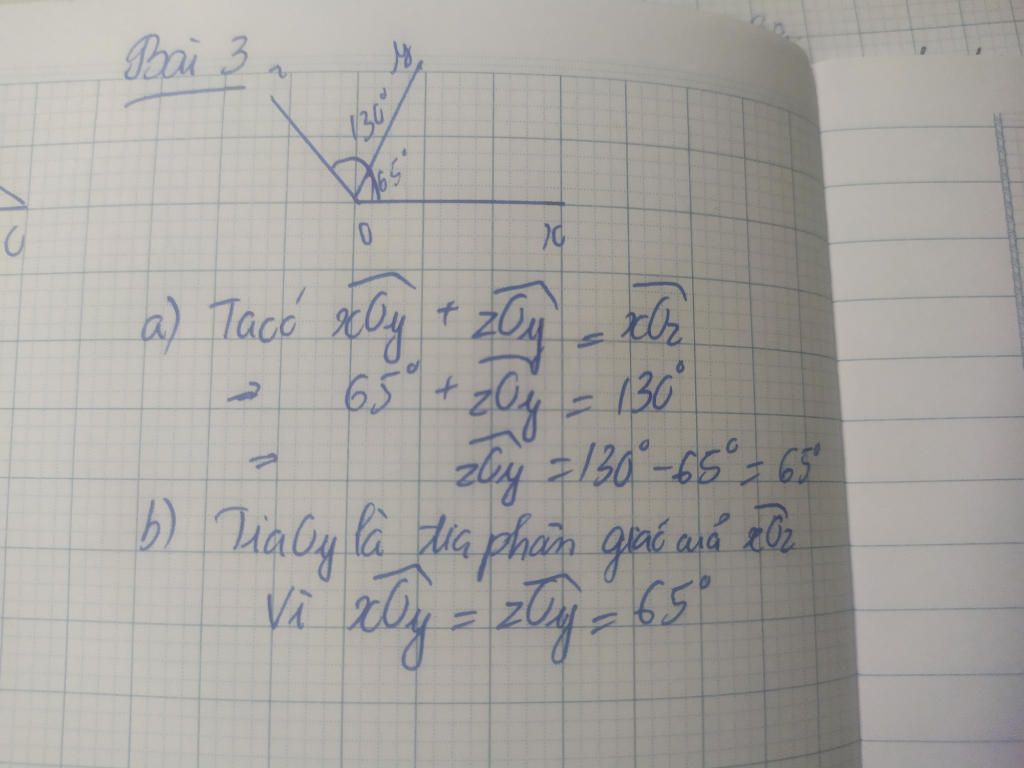 Bài 3
z
y
130°
65°
O
x
a) Ta có xOy + zOy = xOz
⇒ 65° + zOy = 130°
⇒ zOy = 130° - 65° = 65°
b) Tia Oy là tia phân giác của xOz
Vì xOy = zOy = 65°